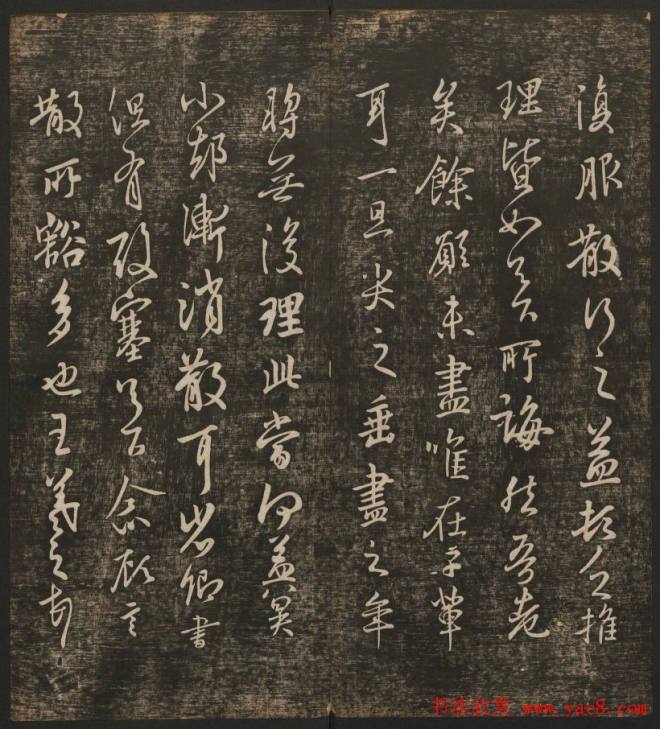 復服散行之益頓乏推
理皆如足下所誨然吾老
矣餘願未盡唯在子輩
耳一旦哭之垂盡之年
轉無復理此當何益冥
小卻漸消散耳省卿書
但有酸塞足下念顧言
散所豁多也王羲之頓首
书法欣赏 www.yac8.com